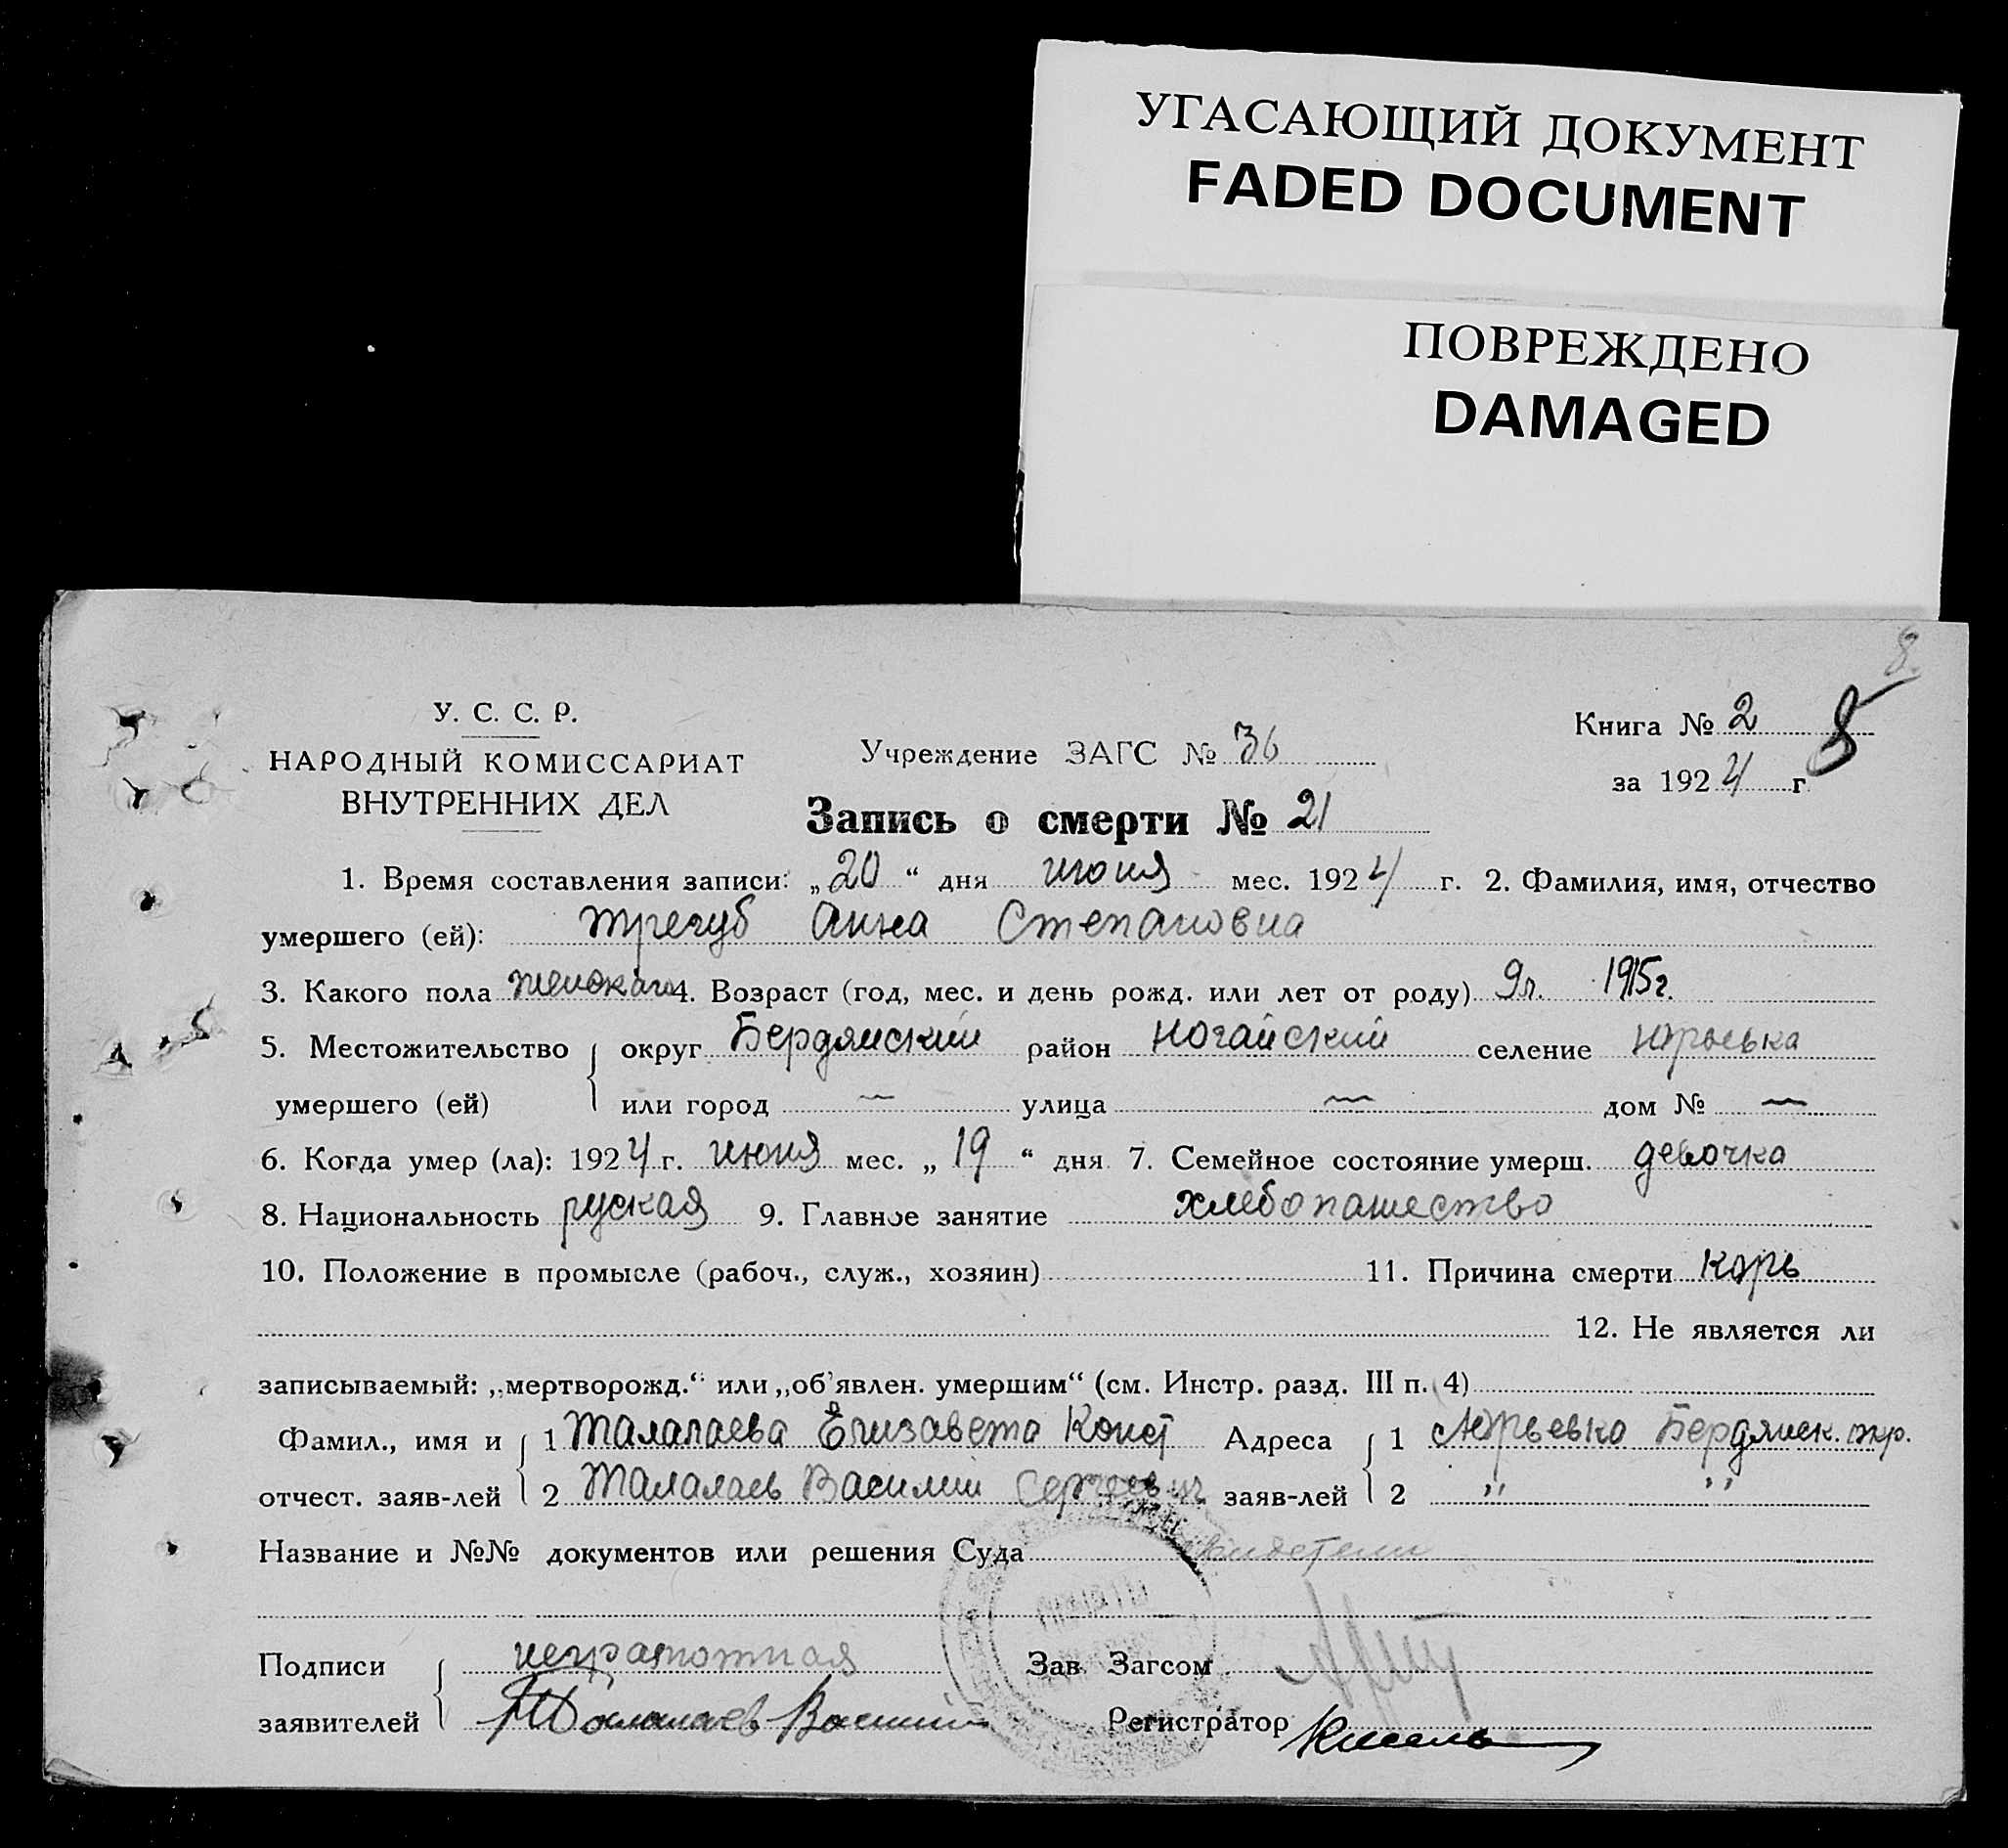 УГАСАЮЩИЙ ДОКУМЕНТ
FADED DOCUMENT
ПОВРЕЖДЕНО
DAMAGED
8.
У. С. С. Р.
НАРОДНЫЙ КОМИССАРИАТ
ВНУТРЕННИХ ДЕЛ
Учреждение ЗАГС № 36
Книга № 2 8
за 1924 г
Запись о смерти № 21
1. Время составления записи: „20“ дня июня мес. 1924 г. 2. Фамилия, имя, отчество
умершего (ей): Трегуб Анна Степановна
3. Какого пола женскаго 4. Возраст (год, мес. и день рожд. или лет от роду) 9л. 1915г.
5. Местожительство округ Бердянский район Ногайский селение Юрьевка
умершего (ей) или город — улица — дом № —
6. Когда умер (ла): 1924 г. июня мес. „19“ дня 7. Семейное состояние умерш. девочка
8. Национальность руская 9. Главное занятие хлебопашество
10. Положение в промысле (рабоч., служ., хозяин) 11. Причина смерти корь
12. Не является ли
записываемый: „мертворожд.“ или „об'явлен. умершим“ (см. Инстр. разд. III п. 4)
Фамил., имя и 1 Талалаева Елизавета Конст Адреса 1 Юрьевка Бердянск. окр.
отчест. заяв-лей 2 Талалаев Василий Сергеевич заяв-лей 2 " "
Название и №№ документов или решения Суда свидетели
Подписи неграмотная Зав Загсом
заявителей Талалаев Василий Регистратор Кисель